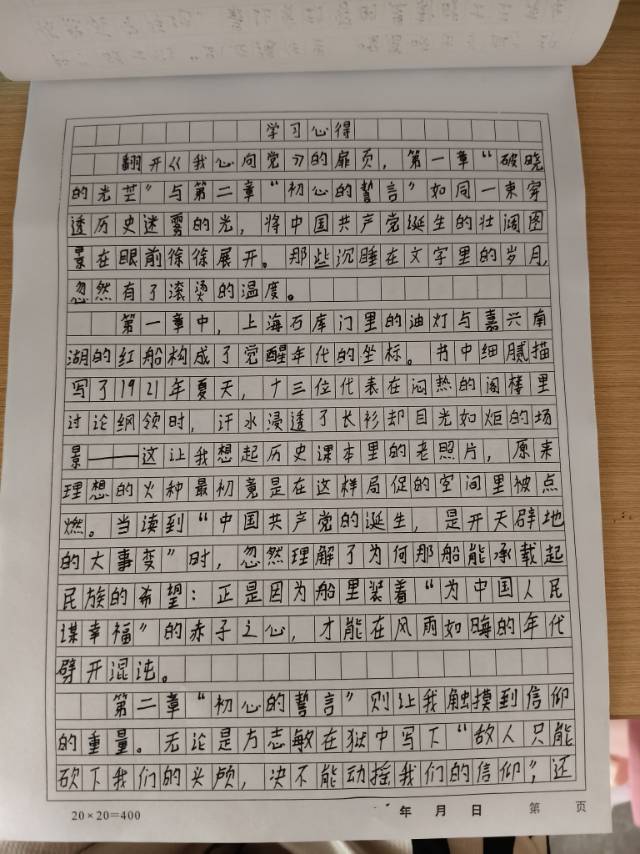 学习心得
翻开《我心向党》的扉页，第一章“破晓
的光芒”与第二章“初心的誓言”如同一束穿
透历史迷雾的光，将中国共产党诞生的壮阔图
景在眼前徐徐展开。那些沉睡在文字里的岁月，
忽然有了滚烫的温度。
第一章中，上海石库门里的油灯与嘉兴南
湖的红船构成了觉醒年代的坐标。书中细腻描
写了1921年夏天，十三位代表在闷热的阁楼里
讨论纲领时，汗水浸透了长衫却目光如炬的场
景——这让我想起历史课本里的老照片，原来
理想的火种最初竟是在这样局促的空间里被点
燃。当读到“中国共产党的诞生，是开天辟地
的大事变”时，忽然理解了为何那船能承载起
民族的希望：正是因为船里装着“为中国人民
谋幸福”的赤子之心，才能在风雨如晦的年代
劈开混沌。
第二章“初心的誓言”则让我触摸到信仰
的重量。无论是方志敏在狱中写下“敌人只能
砍下我们的头颅，决不能动摇我们的信仰”，还
20×20=400 年 月 日 第 页